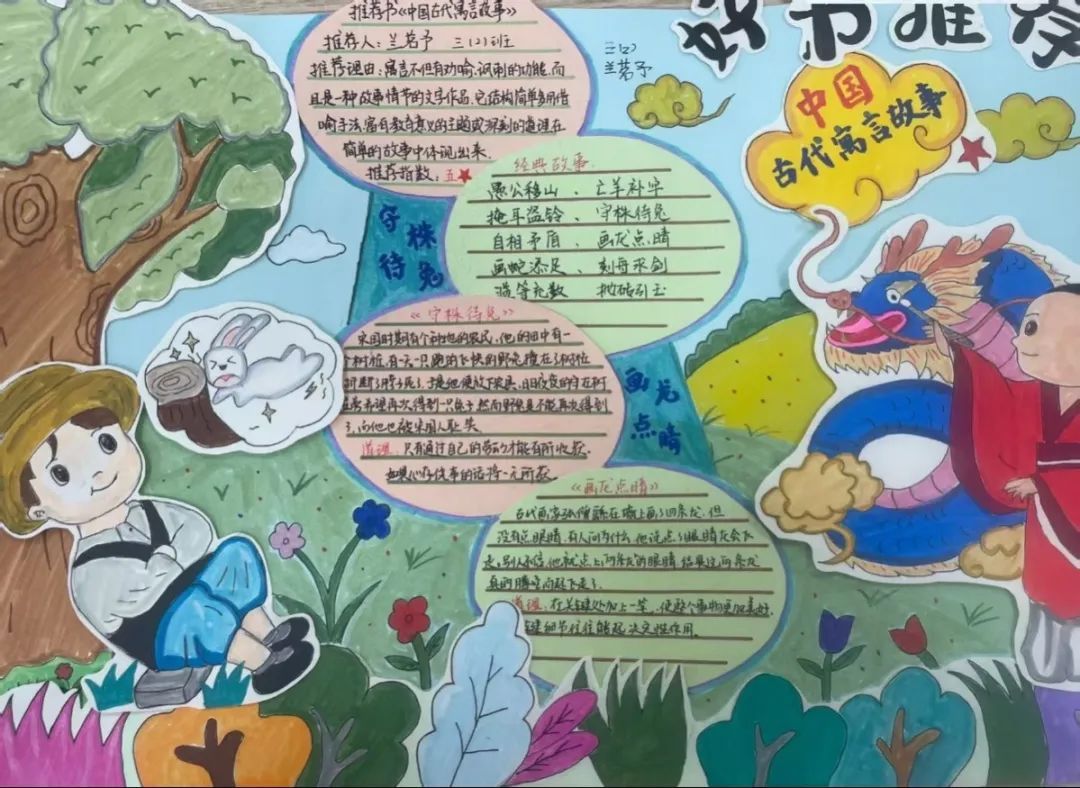 好书推荐
三(2)
兰茗予
中国
古代寓言故事
推荐书《中国古代寓言故事》
推荐人：兰茗予 三(2)班
推荐理由：寓言不但有劝喻、讽刺的功能，而
且是一种故事情节的文字作品，它结构简单多用借
喻手法，富有教育意义的主题或深刻的道理在
简单的故事中体现出来。
推荐指数：五★
经典故事
愚公移山、亡羊补牢
掩耳盗铃、守株待兔
自相矛盾、画龙点睛
画蛇添足、刻舟求剑
滥竽充数 抛砖引玉
守株
待兔
《守株待兔》
宋国时期有个种地的农民，他的田中有一
个树桩，有一天一只跑的卡快的野兔撞在了树桩
折断了脖子死了，于是他便放下农具，日日夜夜的守在树
再次得到一只兔子，然而野兔是不能再次得到
了，而他也被宋国人耻笑。
道理：只有通过自己的劳动才能有所收获
的话将一无所获
画龙
点睛
《画龙点睛》
古代画家张僧繇在墙上画了四条龙，但
没有点眼睛，有人问为什么，他说点了眼睛龙会飞
走，别人不信，他就点上两条龙的眼睛，结果这两条龙
真的腾空而起飞走了。
道理：在关键处加上一笔，使整个事物更加美好，
关键细节往往能起决定性作用。